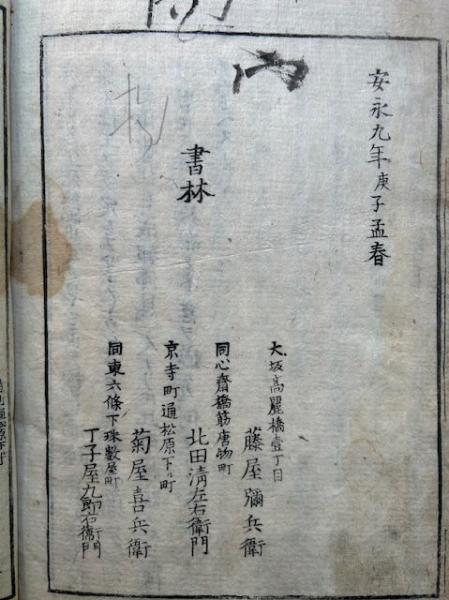 安永九年庚子孟春
書林
大坂高麗橋壹丁目
藤屋彌兵衛
同心齋橋筋唐物町
北田清左右衛門
京寺町通松原下ル町
菊屋喜兵衛
同東六條下珠數屋町
丁子屋九郎右衛門